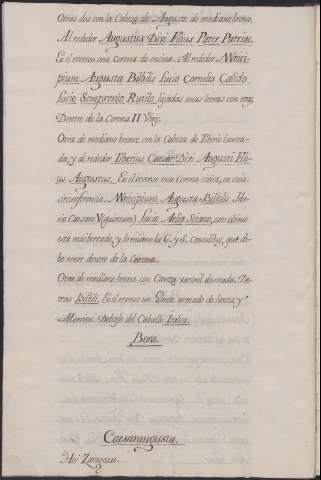 Otras dos con la Cabeza de Augusto de mediano bronce.
Al rededor Augustus Divi Filius Pater Patriae.
En el reverso una Corona de encina. Al rededor Munici-
pium Augusta Bilbilis Lucio Cornelio Calido
Lucio Sempronio Rutilo, ligadas unas letras con otras
Dentro de la Corona II Virij.
Otra de mediano bronce con la Cabeza de Tiberio laurea-
da, y al rededor Tiberius Caesar Divi Augusti Fili-
us Augustus. En el reverso una Corona civica, en cuia
circunferencia. Municipium Augusta Bilbilis Tibe-
rio Caesare V (quintum) Lucio Aelio Seiano, este ultimo
está mui borrado, y lo mismo la C. y S. Consulibus, que de-
be tener dentro de la Corona.
Otra de mediano bronce con Caveza varonil desnuda. De-
tras Bilbili. En el reverso un Ginete armado de lanza, y
Morrion. Debajo del Caballo Italica.
Bora.
Caesaraugusta.
Hoi Zaragoza.